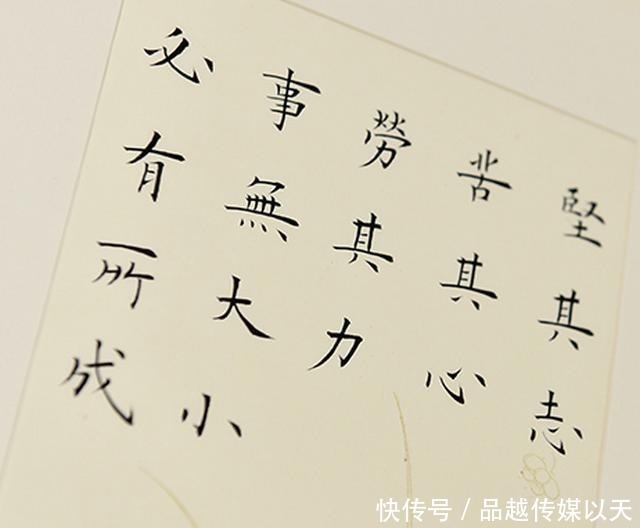 堅其志
苦其心
勞其力
事無大小
必有所成
快传号 / 品越传媒以天